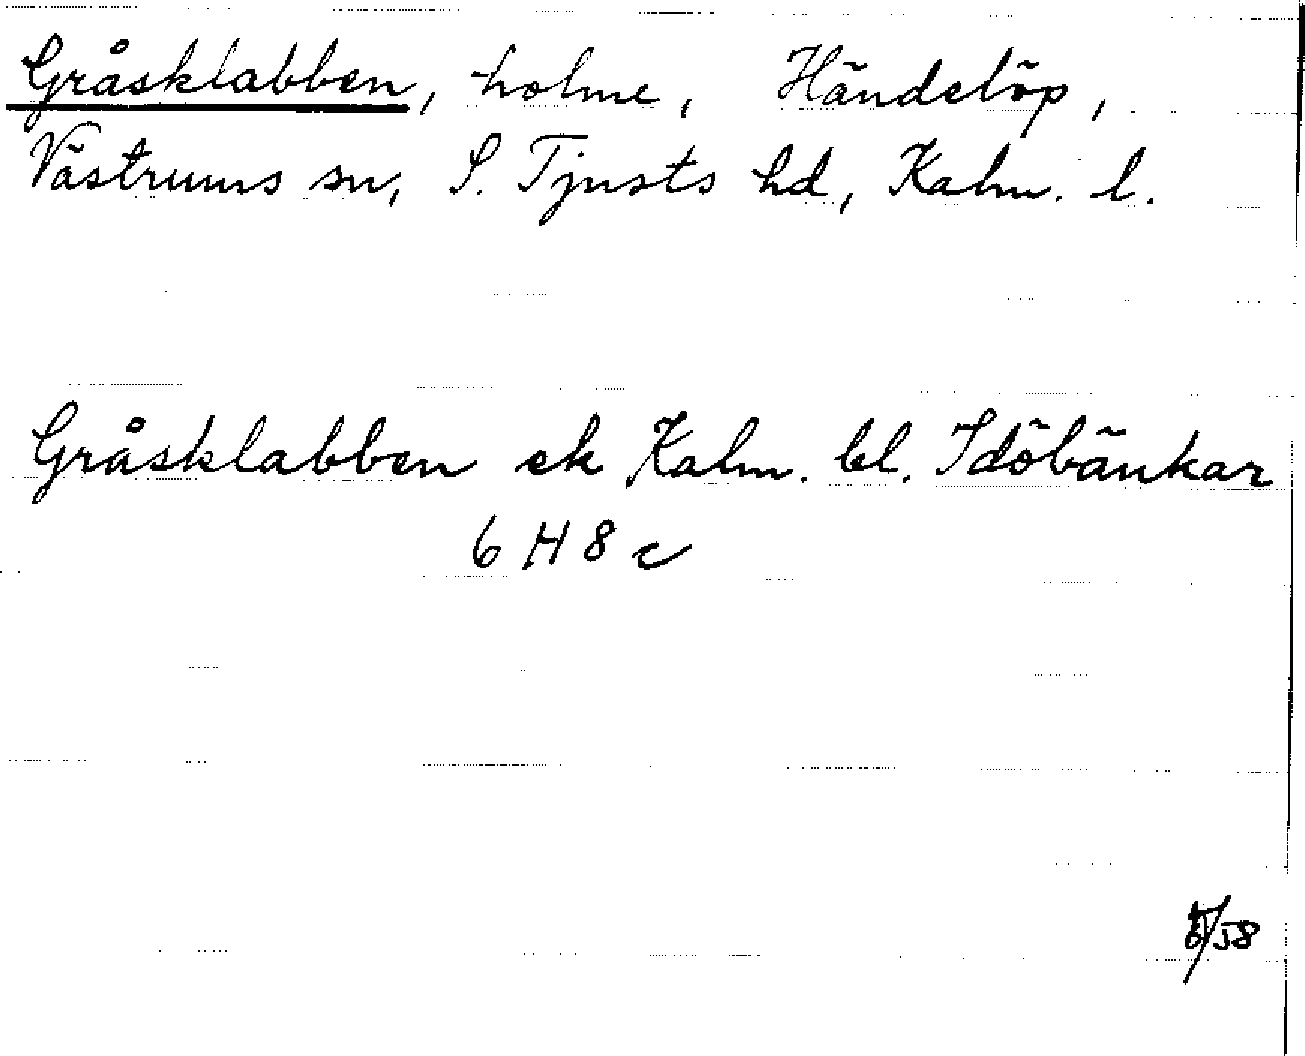 Gråsklabben, holme, Händelöp,
Västrums sn, S. Tjusts hd, Kalm. l.
Gråsklabben ek Kalm. bl. Idöbänkar
6 H 8 c